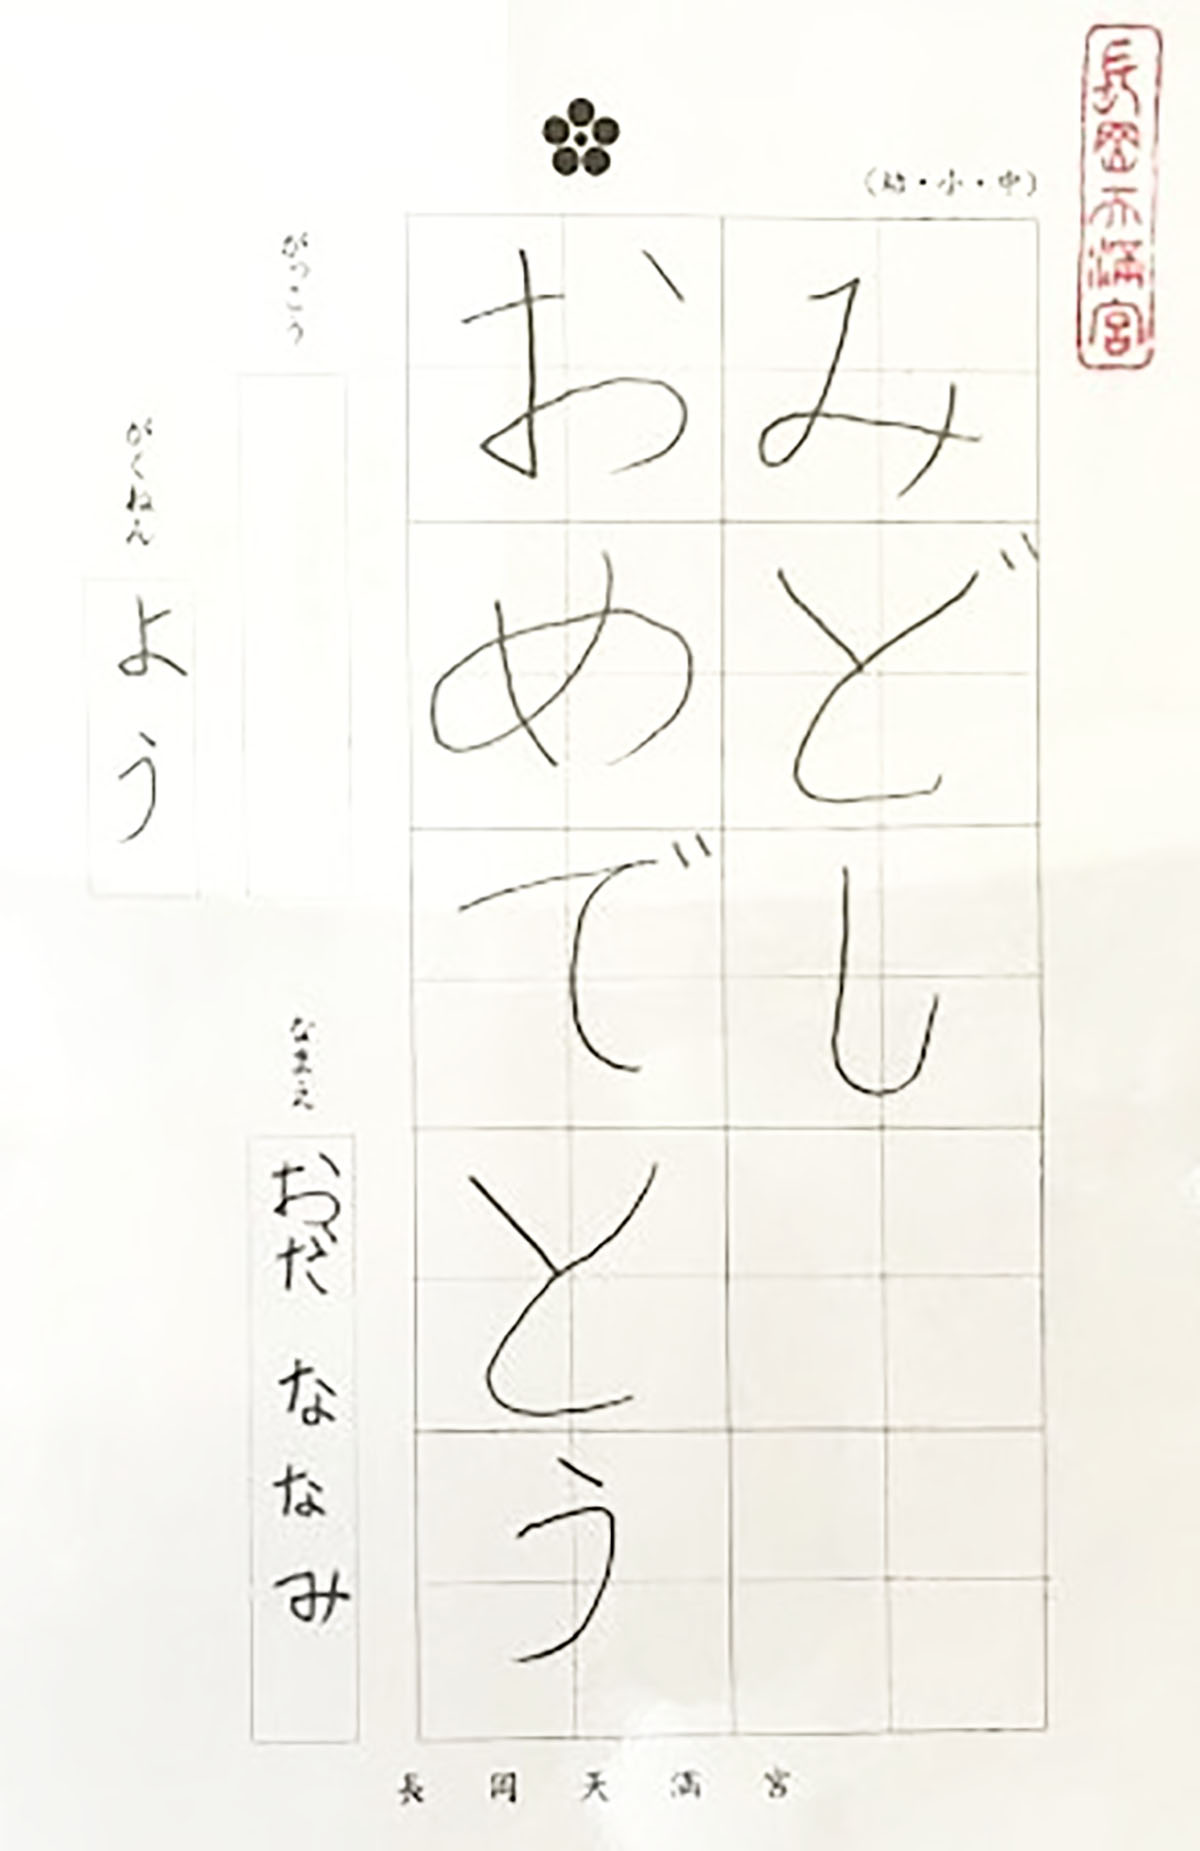 長岡天満宮
（幼・小・中）
みどし
おめでとう
がっこう
がくねん
よう
なまえ
おだ ななみ
長岡天満宮